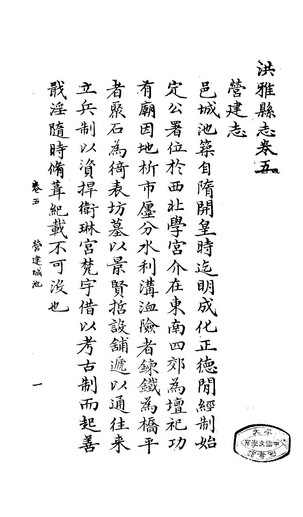 洪雅縣志卷五
營建志
邑城池築自隋開皇時迄明成化正德閒經制始
定公署位於西北學宮介在東南四郊為壇祀功
有廟因地析市廛分水利溝洫險者鍊鐵為橋平
者聚石為徛表坊墓以景賢括設舖遞以通往來
立兵制以資捍衛琳宮梵宇借以考古制而起善
戢淫隨時脩葺紀載不可沒也
卷五
營建 城池
一